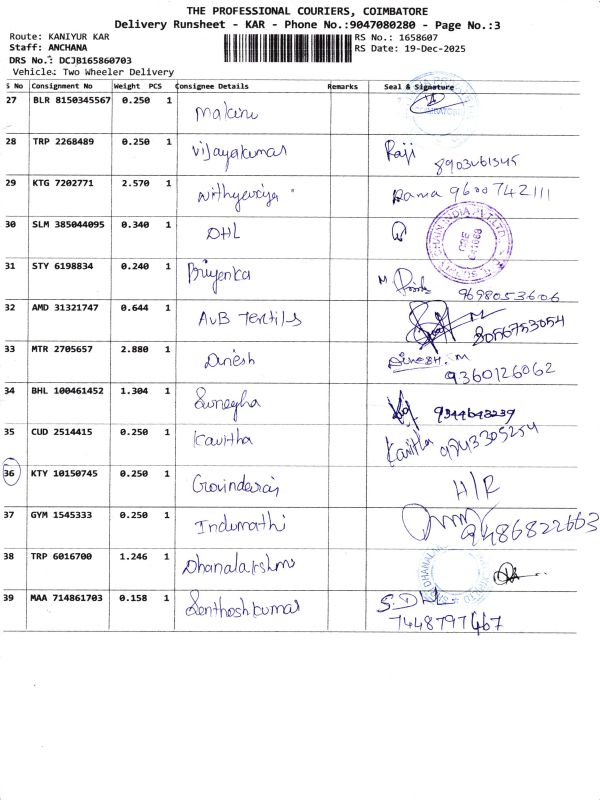 THE PROFESSIONAL COURIERS, COIMBATORE
Delivery Runsheet - KAR - Phone No.:9047080280 - Page No.:3
Route: KANIYUR KAR
Staff: ANCHANA
DRS No.: DCJB165860703
Vehicle: Two Wheeler Delivery
RS No.: 1658607
RS Date: 19-Dec-2025
S No Consignment No Weight PCS Consignee Details Remarks Seal & Signature
27 BLR 8150345567 0.250 1
28 TRP 2268489 0.250 1 Vijayakumar Raji 8903461545
29 KTG 7202771 2.570 1 Nithyapriya Rama 9600742111
30 SLM 385044095 0.340 1 DHL
31 STY 6198834 0.240 1 Priyenka 9698053606
32 AMD 31321747 0.644 1 AvB Textils 8056753054
33 MTR 2705657 2.880 1 Dinesh DINESH.M 9360126062
34 BHL 100461452 1.304 1 Sunegha 9344643239
35 CUD 2514415 0.250 1 Kavitha Kavitha 9843305254
36 KTY 10150745 0.250 1 Govindaraj H/R
37 GYM 1545333 0.250 1 Indumathi 9486822663
38 TRP 6016700 1.246 1 Dhanalakshmi
39 MAA 714861703 0.158 1 Senthoshkumar 7448797467